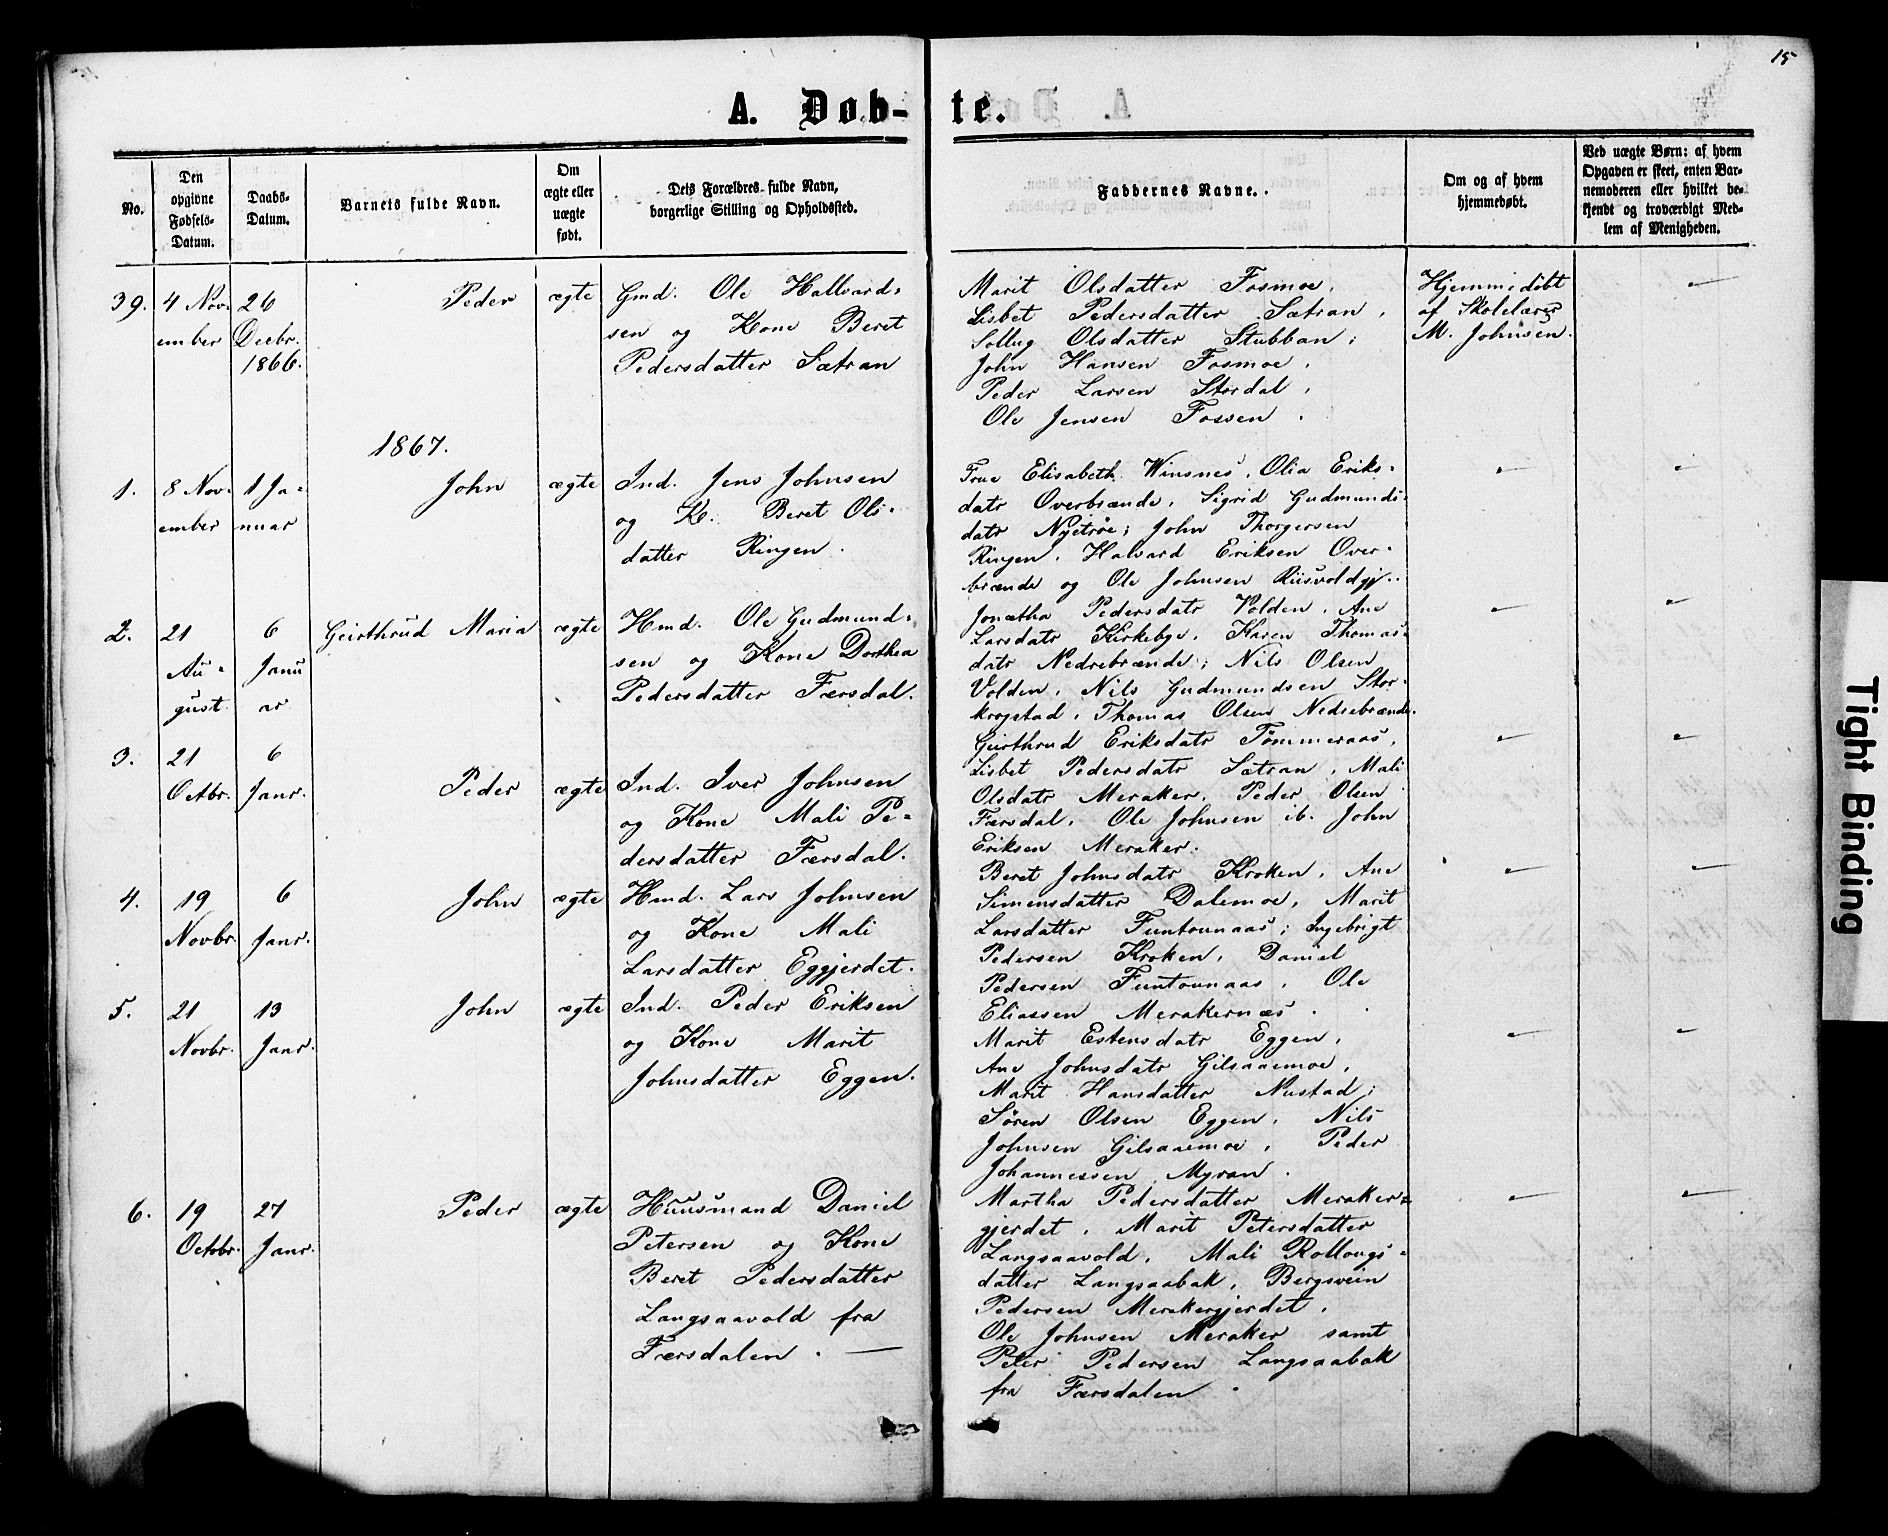 15
A. Døb-te.
No.
Den opgivne Fødsels-Datum.
Daabs-Datum.
Barnets fulde Navn.
Om ægte eller uægte født.
Dets Forældres fulde Navn, borgerlige Stilling og Opholdssted.
Faddernes Navne.
Om og af hvem hjemmedøbt.
Ved uægte Børn: af hvem Opgaven er skeet, enten Barnemoderen eller hvilket bekjendt og troværdigt Medlem af Menigheden.
39.
4 Nov-
ember
26
Decbr.
1866.
Peder
ægte
Gmd. Ole Hallvard-
sen og Kone Beret
Pedersdatter Sætran
Marit Olsdatter Fosmoe,
Lisbet Pedersdatter Sætran,
Sollug Olsdatter Stubban;
John Hansen Fosmoe,
Peder Larsen Stordal,
Ole Jensen Fossen.
Hjemmedøbt
af Skolelærer
M. Johnsen.
1867.
1.
8 Nov-
ember
1 Ja-
nuar
John
ægte
Ind. Jens Johnsen
og K. Beret Ols-
datter Ringen.
Frue Elisabeth Winsnes, Olia Eriks-
datr Overbrænde, Sigrid Gudmunds-
datr Nyetrøe; John Thorgersen
Ringen, Halvard Eriksen Over-
brænde og Ole Johnsen Riisvoldgj..
2.
21
Au-
gust
6
Janu
ar
Geirthrud Maria
ægte
Hmd. Ole Gudmund-
sen og Kone Dorthea
Pedersdatter Færsdal.
Jonætha Pedersdatr Volden, Ane
Larsdatr Kirkebye, Karen Thomas-
datr Nedrebrænde; Nils Olsen
Volden, Nils Gudmundsen Stor-
krogstad, Thomas Olsen Nedrebrænde.
3.
21
Octbr.
6
Janr.
Peder
ægte
Ind. Iver Johnsen
og Kone Mali Pe-
dersdatter Færsdal.
Geirthrud Eriksdatr Tømmeraas,
Lisbet Pedersdatr Sætran, Mali
Olsdatr Meraker, Peder Olsen
Færsdal, Ole Johnsen ib. John
Eriksen Meraker.
4.
19
Novbr.
6
Janr.
John
ægte
Hmd. Lars Johnsen
og Kone Mali
Larsdatter Eggjerdet.
Beret Johnsdatr Kroken, Ane
Simensdatter Dalemoe, Marit
Larsdatter Funtounaas; Ingebrigt
Pedersen Kroken, Daniel
Pedersen Funtounaas, Ole
Eliassen Merakernæs.
5.
21
Novbr.
13
Janr.
John
ægte
Ind. Peder Eriksen
og Kone Marit
Johnsdatter Eggen.
Marit Estensdatr Eggen,
Ane Johnsdatr Gilsaaemoe,
Marit Hansdatter Nustad;
Søren Olsen Eggen, Nils
Johnsen Gilsaaemoe, Peder
Johannessen Myran.
6.
19
Octobr.
27
Janr.
Peder
ægte
Huusmand Daniel
Petersen og Kone
Beret Pedersdatter
Langsaavold fra
Færsdalen.
Martha Pedersdatter Meraker-
gjerdet, Marit Petersdatter
Langsaavold, Mali Rollougs-
datter Langsaabak, Bergsvein
Pedersen Merakergjerdet,
Ole Johnsen Meraker samt
Peter Pedersen Langsaabak
fra Færsdalen.
Tight Binding